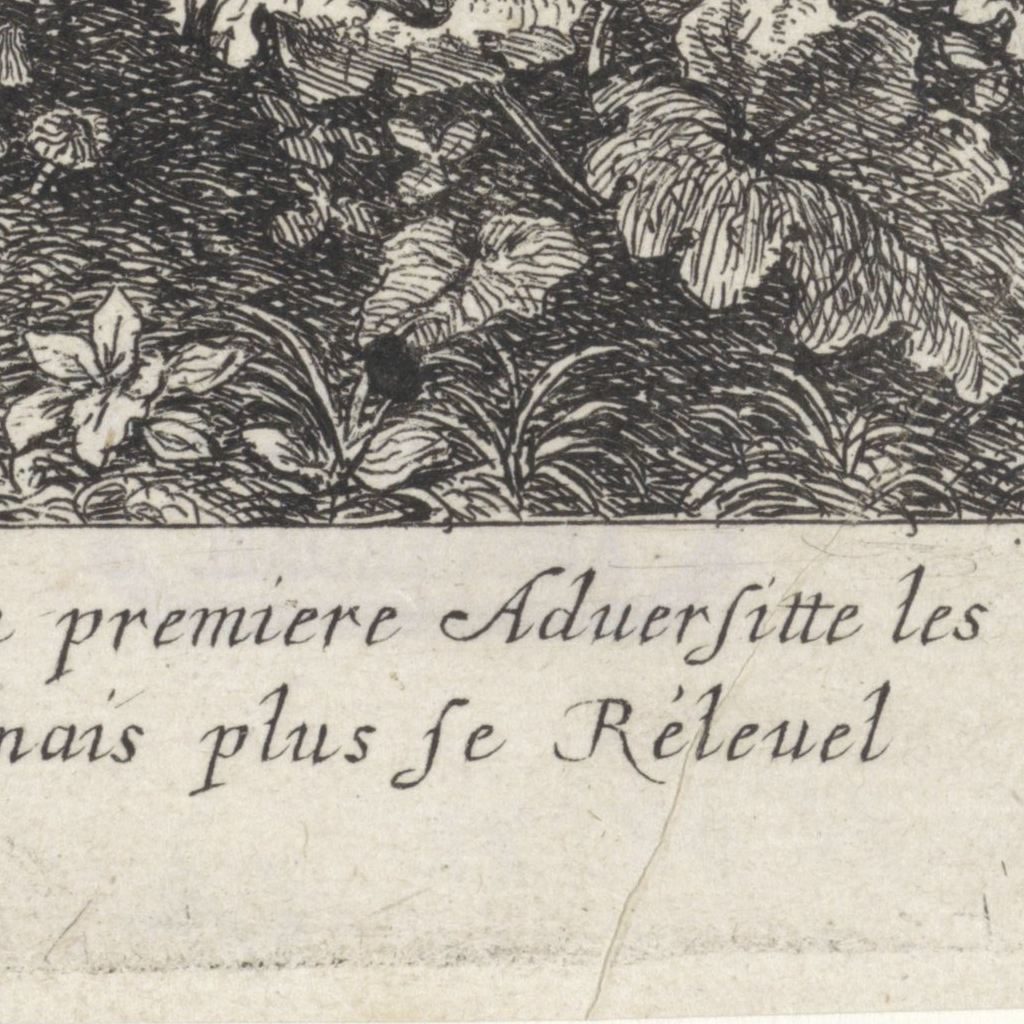 premiere Aduerſitte les
nais plus ſe Réleuel